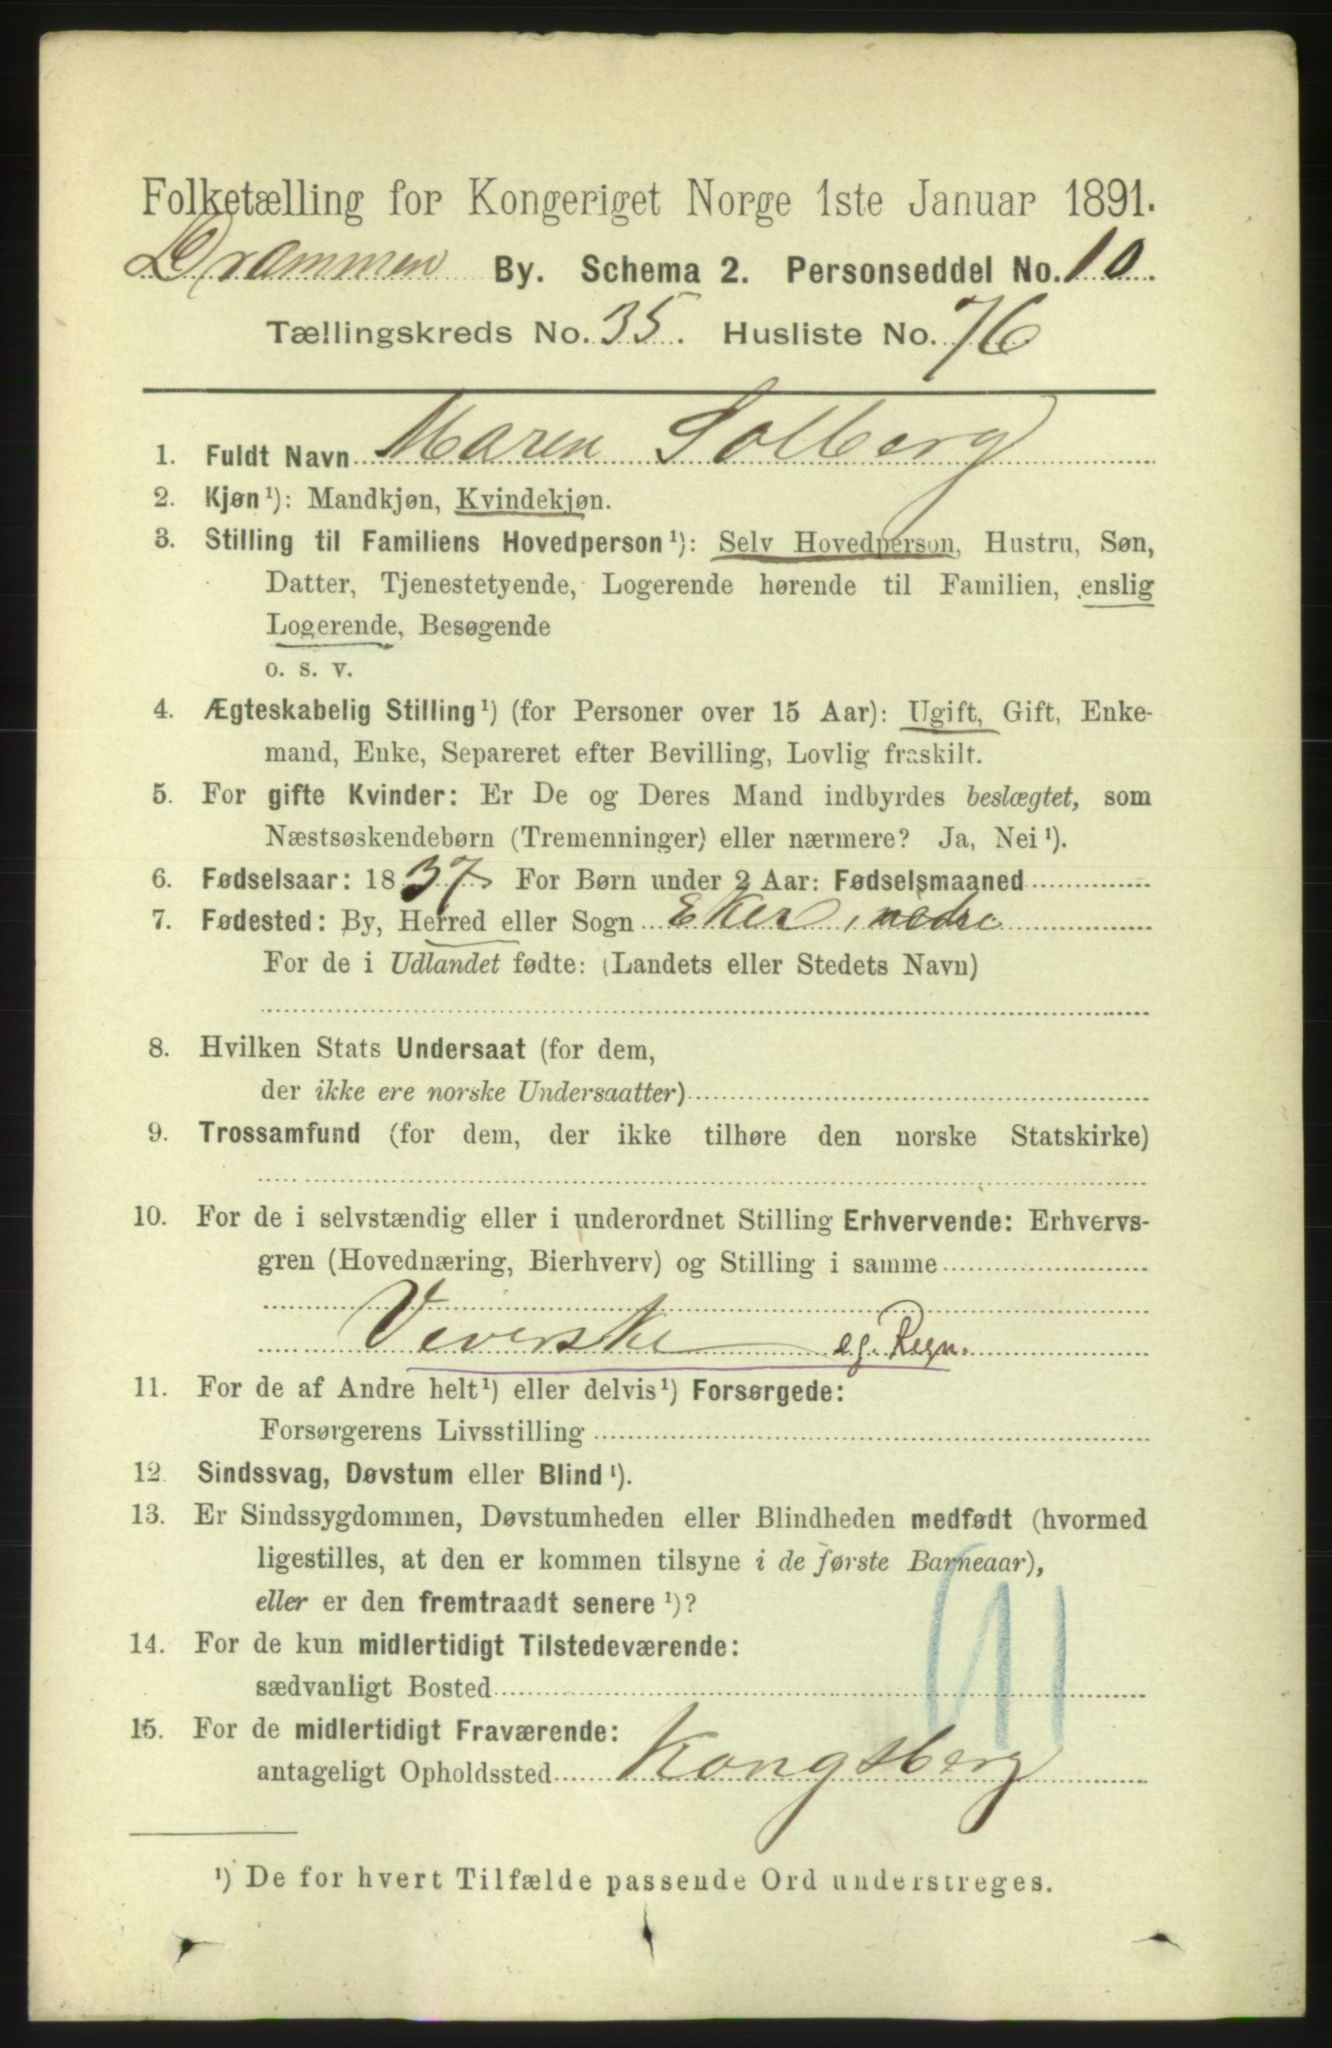 Folketælling for Kongeriget Norge 1ste Januar 1891.
Drammen By. Schema 2. Personseddel No. 10.
Tællingskreds No. 35. Husliste No. 76
1. Fuldt Navn Maren Solberg
2. Kjøn¹): Mandkjøn, Kvindekjøn.
3. Stilling til Familiens Hovedperson¹): Selv Hovedperson, Hustru, Søn,
Datter, Tjenestetyende, Logerende hørende til Familien, enslig
Logerende, Besøgende
o. s. v.
4. Ægteskabelig Stilling¹) (for Personer over 15 Aar): Ugift, Gift, Enke-
mand, Enke, Separeret efter Bevilling, Lovlig fraskilt.
5. For gifte Kvinder: Er De og Deres Mand indbyrdes beslægtet, som
Næstsøskendebørn (Tremenninger) eller nærmere? Ja, Nei¹).
6. Fødselsaar: 1837 For Børn under 2 Aar: Fødselsmaaned
7. Fødested: By, Herred eller Sogn Eker, nedre
For de i Udlandet fødte: (Landets eller Stedets Navn)
8. Hvilken Stats Undersaat (for dem,
der ikke ere norske Undersaatter)
9. Trossamfund (for dem, der ikke tilhøre den norske Statskirke)
10. For de i selvstændig eller i underordnet Stilling Erhvervende: Erhvervs-
gren (Hovednæring, Bierhverv) og Stilling i samme
Væverske eg. Regn.
11. For de af Andre helt¹) eller delvis¹) Forsørgede:
Forsørgerens Livsstilling
12. Sindssvag, Døvstum eller Blind¹).
13. Er Sindssygdommen, Døvstumheden eller Blindheden medfødt (hvormed
ligestilles, at den er kommen tilsyne i de første Barneaar),
eller er den fremtraadt senere¹)?
14. For de kun midlertidigt Tilstedeværende:
sædvanligt Bosted
15. For de midlertidigt Fraværende:
antageligt Opholdssted Kongsberg
¹) De for hvert Tilfælde passende Ord understreges.